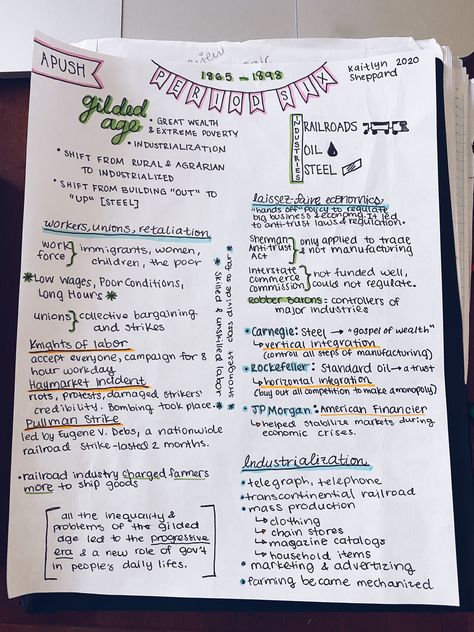 APUSH
PERIOD SIX
1865 - 1898
Kaitlyn 2020
Sheppard
gilded
age
• GREAT WEALTH
& EXTREME POVERTY
• INDUSTRIALIZATION
• SHIFT FROM RURAL & AGRARIAN
TO INDUSTRIALIZED
• SHIFT FROM BUILDING "OUT" TO
"UP" [STEEL]
INDUSTRIES
RAILROADS
OIL
STEEL
workers, unions, retaliation
work
force } immigrants, women,
children, the poor
* Low Wages, Poor Conditions,
Long Hours *
unions } collective bargaining
and strikes
Knights of labor
accept everyone, campaign for 8
hour workday
Haymarket Incident
riots, protests, damaged strikers'
credibility. Bombing took place.
Pullman Strike
led by Eugene V. Debs, a nationwide
railroad strike-lasted 2 months.
• railroad industry charged farmers
more to ship goods
all the inequality &
problems of the gilded
age led to the progressive
era & a new role of gov't
in people's daily lifes.
* skilled & unskilled labor
strongest class divide so far *
laissez-faire economics
"hands off" policy to regulate
big business & economy. It led
to anti-trust laws & regulation.
Sherman
Anti-trust
Act } only applied to trade
& not manufacturing
Interstate
commerce
Commission } not funded well,
could not regulate.
Robber Barons: controllers of
major industries
• Carnegie: Steel → "gospel of wealth"
↳ vertical integration
(control all steps of manufacturing)
• Rockefeller: Standard oil → a trust
↳ horizontal integration
(buy out all competition to make a monopoly)
• JP Morgan: American Financier
↳ helped stabilize markets during
economic crises.
Industrialization
• telegraph, telephone
• transcontinental railroad
• mass production
↳ clothing
↳ chain stores
↳ magazine catalogs
↳ household items
• marketing & advertizing
• farming became mechanized